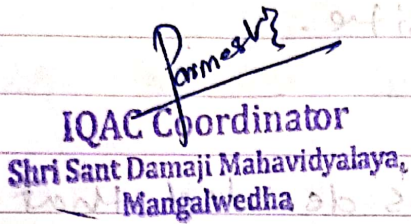 IQAC Coordinator
Shri Sant Damaji Mahavidyalaya,
Mangalwedha